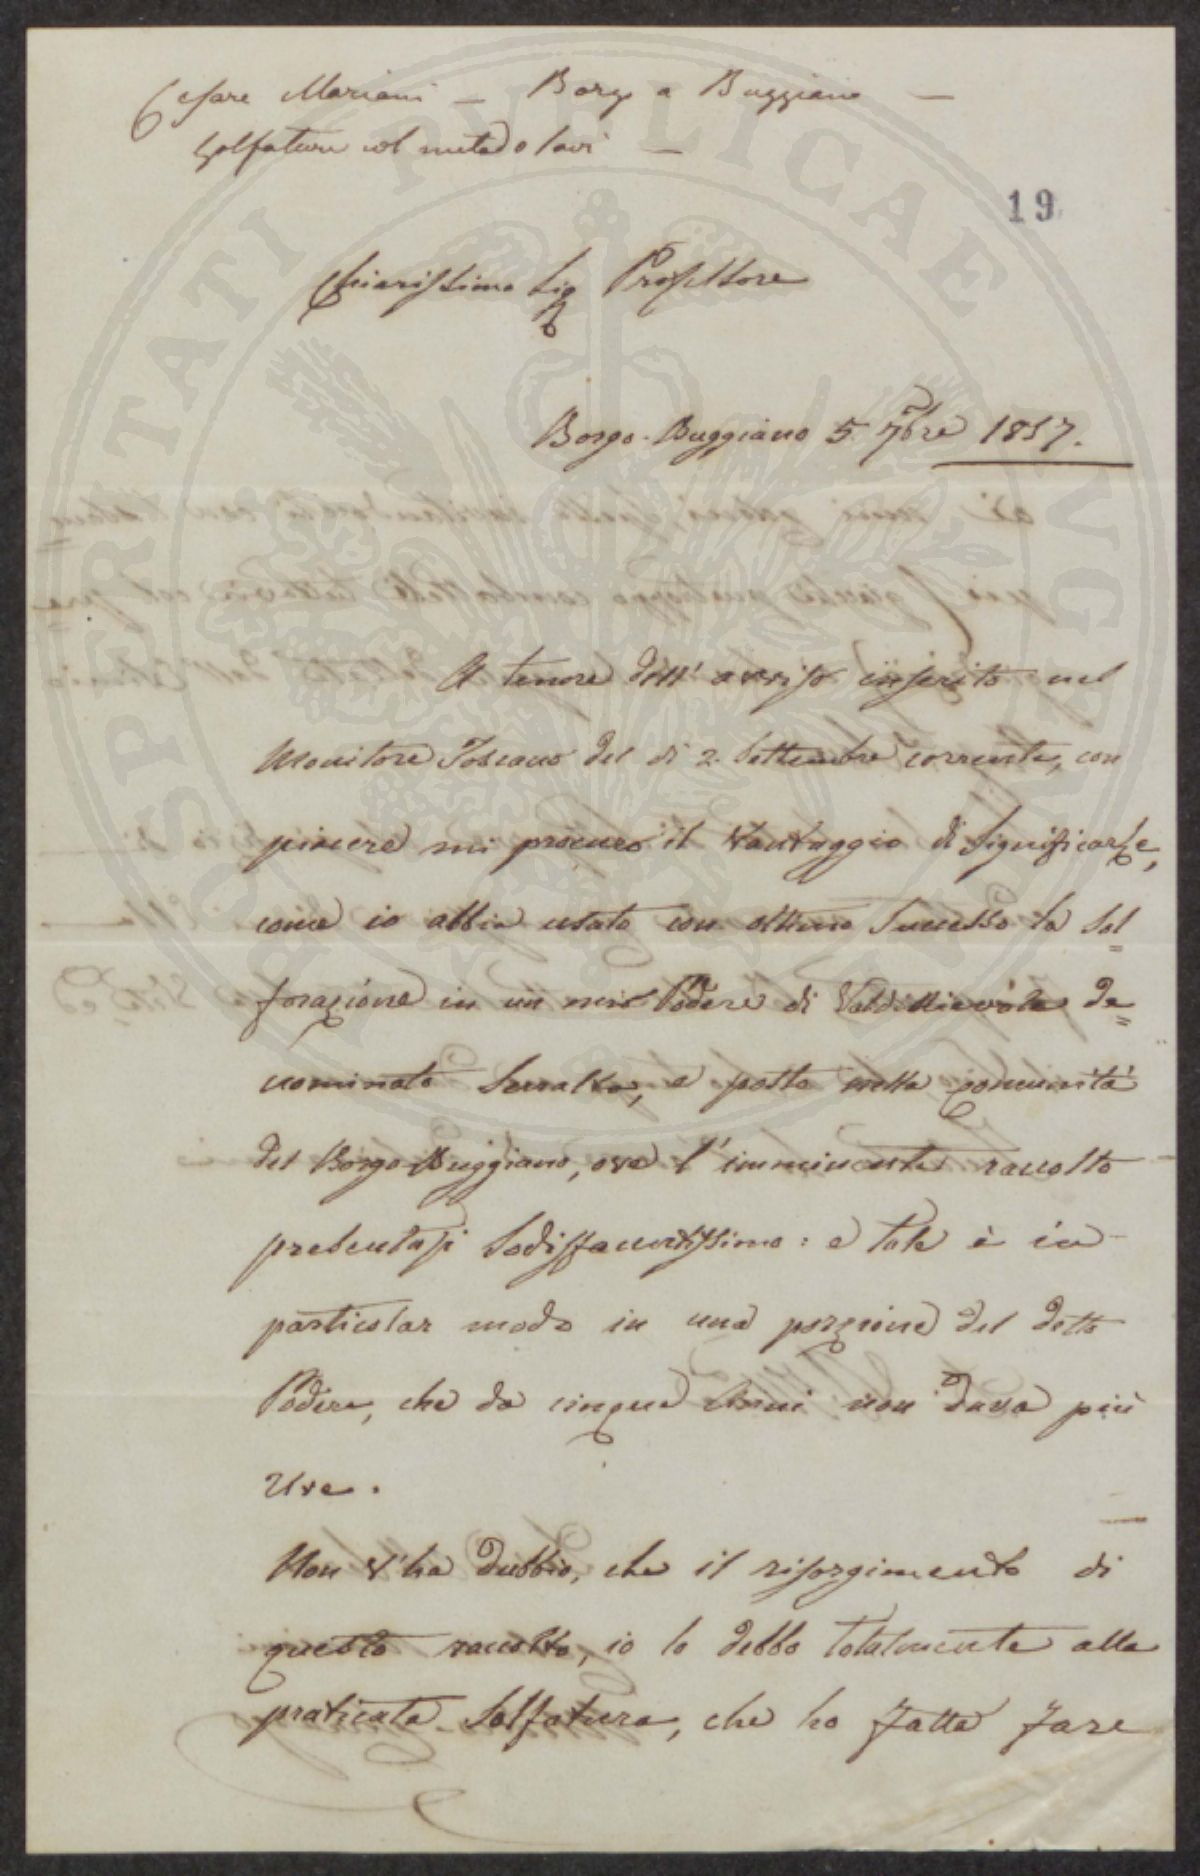 Cesare Mariani — Borgo a Buggiano —
Solfatura col metodo Savi —
19
Chiarissimo Sig Professore
Borgo-Buggiano 5. 7bre 1857.
A tenore dell' avviso inserito nel
Monitore Toscano del dì 2. Settembre corrente, con
piacere mi procuro il vantaggio di significarle,
come io abbia usato con ottimo successo la Sol=
forazione in un mio Podere di Valdinievole de=
nominato Serralto, e posto nella Comunità
del Borgo-Buggiano, ove l'imminente raccolto
presentasi sodisfacentissimo: e tale è in
particolar modo in una porzione del detto
Podere, che da cinque Anni non dava più
Uve.
Non v'ha dubbio, che il risorgimento di
questo raccolto, io lo debbo totalmente alla
praticata Solfatura, che ho fatta fare
POSPERITATI PVBLICAE AVGENDAE